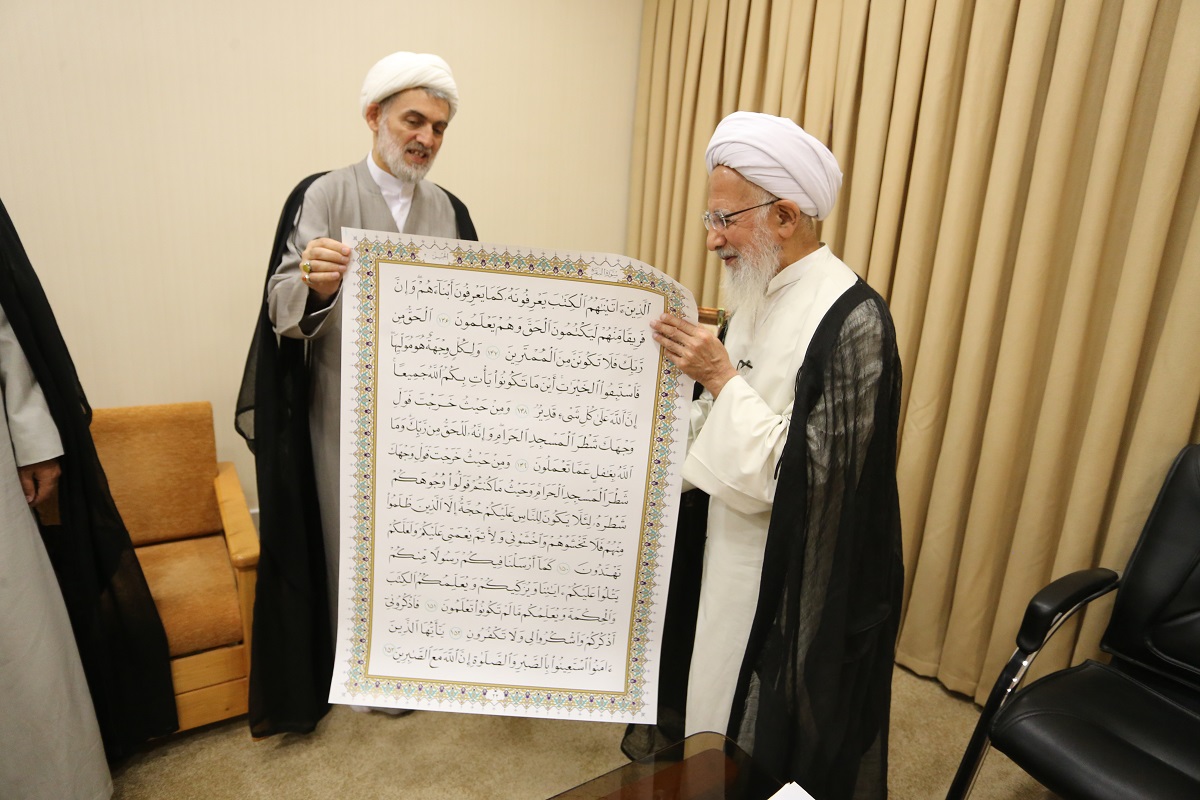 سُورَةُ البَقَرَة
ٱلَّذِينَ ءَاتَيۡنَٰهُمُ ٱلۡكِتَٰبَ يَعۡرِفُونَهُۥ كَمَا يَعۡرِفُونَ أَبۡنَآءَهُمۡۖ وَإِنَّ
فَرِيقٗا مِّنۡهُمۡ لَيَكۡتُمُونَ ٱلۡحَقَّ وَهُمۡ يَعۡلَمُونَ ١٤٦ ٱلۡحَقُّ مِن
رَّبِّكَ فَلَا تَكُونَنَّ مِنَ ٱلۡمُمۡتَرِينَ ١٤٧ وَلِكُلّٖ وِجۡهَةٌ هُوَ مُوَلِّيهَاۖ
فَٱسۡتَبِقُواْ ٱلۡخَيۡرَٰتِۚ أَيۡنَ مَا تَكُونُواْ يَأۡتِ بِكُمُ ٱللَّهُ جَمِيعًاۚ
إِنَّ ٱللَّهَ عَلَىٰ كُلِّ شَيۡءٖ قَدِيرٞ ١٤٨ وَمِنۡ حَيۡثُ خَرَجۡتَ فَوَلِّ
وَجۡهَكَ شَطۡرَ ٱلۡمَسۡجِدِ ٱلۡحَرَامِۖ وَإِنَّهُۥ لَلۡحَقُّ مِن رَّبِّكَۗ وَمَا
ٱللَّهُ بِغَٰفِلٍ عَمَّا تَعۡمَلُونَ ١٤٩ وَمِنۡ حَيۡثُ خَرَجۡتَ فَوَلِّ وَجۡهَكَ
شَطۡرَ ٱلۡمَسۡجِدِ ٱلۡحَرَامِۚ وَحَيۡثُ مَا كُنتُمۡ فَوَلُّواْ وُجُوهَكُمۡ
شَطۡرَهُۥ لِئَلَّا يَكُونَ لِلنَّاسِ عَلَيۡكُمۡ حُجَّةٌ إِلَّا ٱلَّذِينَ ظَلَمُواْ
مِنۡهُمۡ فَلَا تَخۡشَوۡهُمۡ وَٱخۡشَوۡنِي وَلِأُتِمَّ نِعۡمَتِي عَلَيۡكُمۡ وَلَعَلَّكُمۡ
تَهۡتَدُونَ ١٥٠ كَمَآ أَرۡسَلۡنَا فِيكُمۡ رَسُولٗا مِّنكُمۡ
يَتۡلُواْ عَلَيۡكُمۡ ءَايَٰتِنَا وَيُزَكِّيكُمۡ وَيُعَلِّمُكُمُ ٱلۡكِتَٰبَ
وَٱلۡحِكۡمَةَ وَيُعَلِّمُكُم مَّا لَمۡ تَكُونُواْ تَعۡلَمُونَ ١٥١ فَٱذۡكُرُونِيٓ
أَذۡكُرۡكُمۡ وَٱشۡكُرُواْ لِي وَلَا تَكۡفُرُونِ ١٥٢ يَٰٓأَيُّهَا ٱلَّذِينَ
ءَامَنُواْ ٱسۡتَعِينُواْ بِٱلصَّبۡرِ وَٱلصَّلَوٰةِۚ إِنَّ ٱللَّهَ مَعَ ٱلصَّٰبِرِينَ ١٥٣